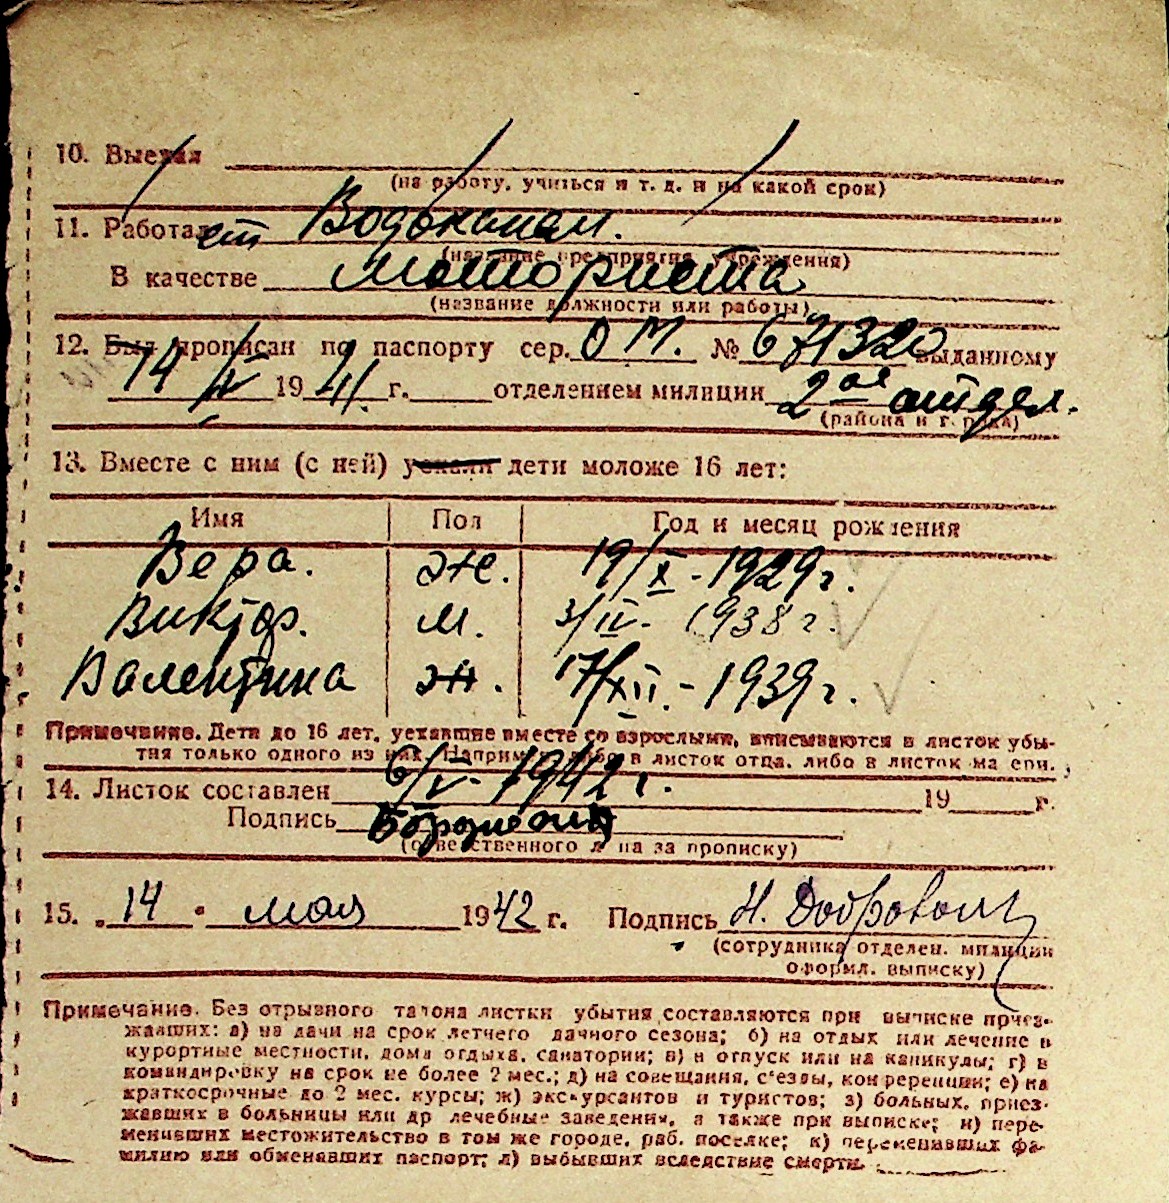 10. Выехал
(на работу, учиться и т. д. и на какой срок)
11. Работает Водоканал.
(название предприятия, учреждения)
В качестве моториста
(название должности или работы)
12. Был прописан по паспорту сер. О М. № 671320 выданному
14/IV 1941 г. отделением милиции 2ое отдел.
(района и города)
13. Вместе с ним (с ней) уехали дети моложе 16 лет:
Имя Пол Год и месяц рождения
Вера. ж. 19/X - 1929 г.
Виктор. м. 3/II - 1938 г.
Валентина ж. 17/XII. - 1939 г.
Примечание. Дети до 16 лет, уехавшие вместе со взрослыми, вписываются в листок убы-
тия только одного из них. Например, либо в листок отца, либо в листок матери.
14. Листок составлен 6/V - 1942 г. 19 г.
Подпись
(ответственного лица за прописку)
15. „14" мая 1942 г. Подпись Н. Добровол
(сотрудника отделен. милиции
оформл. выписку)
Примечание. Без отрывного талона листки убытия составляются при выписке приез-
жавших: а) на дачи на срок летнего дачного сезона; б) на отдых или лечение в
курортные местности, дома отдыха, санатории; в) в отпуск или на каникулы; г) в
командировку на срок не более 2 мес.; д) на совещания, с'езды, конференции; е) на
краткосрочные до 2 мес. курсы; ж) экскурсантов и туристов; з) больных, приез-
жавших в больницы или др лечебные заведения, а также при выписке; и) пере-
менивших местожительство в том же городе, раб. поселке; к) переменивших фа-
милию или обменявших паспорт; л) выбывших вследствие смерти.